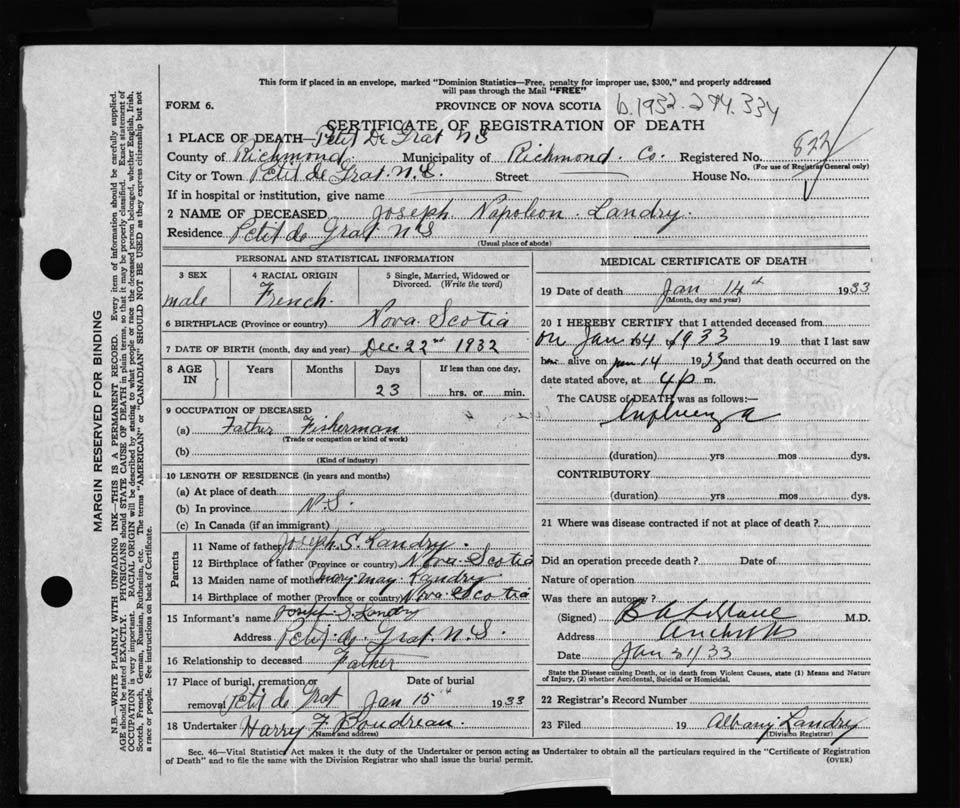 This form if placed in an envelope, marked "Dominion Statistics—Free, penalty for improper use, $300," and properly addressed
will pass through the Mail "FREE"
FORM 6.
PROVINCE OF NOVA SCOTIA
b.1932.294.334
CERTIFICATE OF REGISTRATION OF DEATH
1 PLACE OF DEATH—Petit De Grat NS
County of Richmond. Municipality of Richmond. Co. Registered No. 822
(For use of Registrar General only)
City or Town Petit de Grat. N.S. Street House No.
If in hospital or institution, give name
2 NAME OF DECEASED Joseph Napoleon Landry.
Residence Petit de Grat NS
(Usual place of abode)
PERSONAL AND STATISTICAL INFORMATION
3 SEX
male
4 RACIAL ORIGIN
French.
5 Single, Married, Widowed or Divorced. (Write the word)
6 BIRTHPLACE (Province or country) Nova Scotia
7 DATE OF BIRTH (month, day and year) Dec 22nd 1932
8 AGE IN
Years
Months
Days
23
If less than one day,
hrs. or min.
9 OCCUPATION OF DECEASED
(a) Father Fisherman
(Trade or occupation or kind of work)
(b)
(Kind of industry)
10 LENGTH OF RESIDENCE (in years and months)
(a) At place of death
(b) In province N.S.
(c) In Canada (if an immigrant)
Parents
11 Name of father Joseph S. Landry.
12 Birthplace of father (Province or country) Nova Scotia
13 Maiden name of mother Mary May Landry
14 Birthplace of mother (Province or country) Nova Scotia
15 Informant's name Joseph S. Landry
Address Petit de Grat N.S.
16 Relationship to deceased Father
17 Place of burial, cremation or removal Petit de Grat
Date of burial
Jan 15 1933
18 Undertaker Harry F. Boudreau.
(Name and address)
MEDICAL CERTIFICATE OF DEATH
19 Date of death Jan 14th 1933
(Month, day and year)
20 I HEREBY CERTIFY that I attended deceased from
on Jan 14 1933 19 that I last saw
h alive on Jan 14 1933 and that death occurred on the
date stated above, at 4 p m.
The CAUSE of DEATH was as follows:—
Influenza
(duration) yrs mos dys.
CONTRIBUTORY
(duration) yrs mos dys.
21 Where was disease contracted if not at place of death?
Did an operation precede death? Date of
Nature of operation
Was there an autopsy?
(Signed) B A LeBlanc M.D.
Address Arichat
Date Jan 21/33
State the Disease causing Death, or in death from Violent Causes, state (1) Means and Nature
of Injury, (2) whether Accidental, Suicidal or Homicidal.
22 Registrar's Record Number
23 Filed 19 Albany Landry
(Division Registrar)
Sec. 46—Vital Statistics Act makes it the duty of the Undertaker or person acting as Undertaker to obtain all the particulars required in the "Certificate of Registration
of Death" and to file the same with the Division Registrar who shall issue the burial permit.
(OVER)
MARGIN RESERVED FOR BINDING
N.B.—WRITE PLAINLY WITH UNFADING INK—THIS IS A PERMANENT RECORD. Every item of information should be carefully supplied.
AGE should be stated EXACTLY. PHYSICIANS should STATE CAUSE OF DEATH in plain terms, so that it may be properly classified. Exact statement of
OCCUPATION is very important. RACIAL ORIGIN will be described by stating to what people or race the deceased person belonged, whether English, Irish,
Scotch, French, German, Russian, Ruthenian, etc. The terms "AMERICAN" or "CANADIAN" SHOULD NOT BE USED as they express citizenship but not
a race or people. See instructions on back of Certificate.